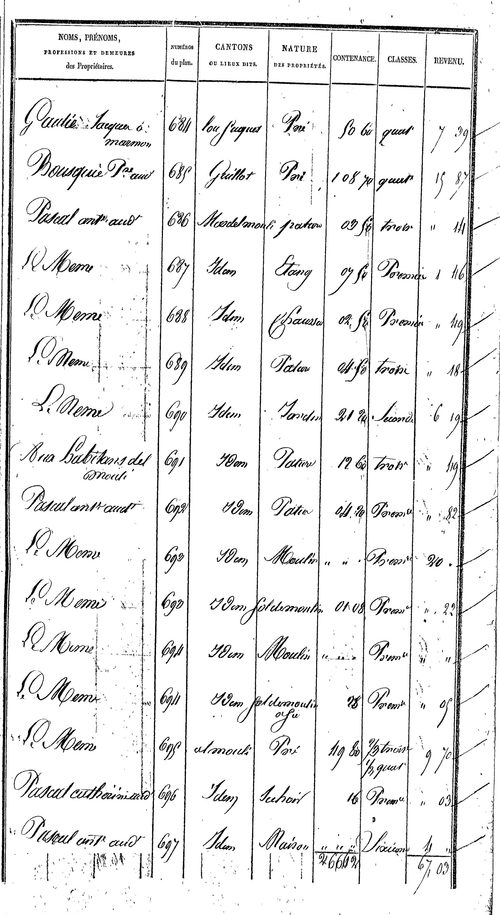 NOMS, PRÉNOMS, PROFESSIONS ET DEMEURES des Propriétaires. NUMÉROS du plan. CANTONS OU LIEUX DITS. NATURE DES PROPRIÉTÉS. CONTENANCE. CLASSES. REVENU.
Jacques à 684 Pré 50 60 quat 7 39
marmon
Bousquié 685 Guillot Pré 1 08 70 quat 15 87
Pascal antne audt 686 Masdelmouli pature 03 50 trois " 14
Le Meme 687 Idem Etang 07 50 Premier 1 46
Le Meme 688 Idem Chaussée 02 50 Premier " 49
Le Meme 689 Idem Pature 04 50 trois " 18
Le Meme 690 Idem Jardin 21 20 Second 6 19
Aux habitans del 691 Idem Pature 12 60 trois " 49
mouli
Pascal antne audt 692 Idem Patur 04 20 Premr " 82
Le Meme 693 Idem Moulin " " " Premr 20 "
Le Meme 693 Idem sol de moulin 01 08 Premr " 22
Le Meme 694 Idem Moulin " " " Premr " "
Le Meme 694 Idem sol de moulin 28 Premr " 05
Le Meme 695 al mouli Pré 49 80 1/2 trois 9 70
1/2 quat
Pascal catherine audt 696 Idem 16 Premr " 03
Pascal antne audt 697 Idem Maison " " " Sixieme 4 "
67 03